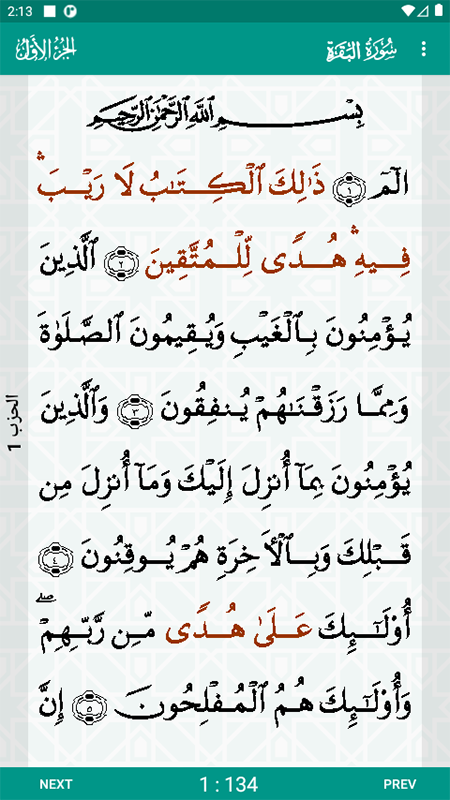 2:13
الجزء الأول سورة البقرة
بِسْمِ ٱللَّهِ ٱلرَّحْمَٰنِ ٱلرَّحِيمِ
الٓمٓ ١ ذَٰلِكَ ٱلْكِتَٰبُ لَا رَيْبَ ۛ
فِيهِ ۛ هُدًى لِّلْمُتَّقِينَ ٢ ٱلَّذِينَ
يُؤْمِنُونَ بِٱلْغَيْبِ وَيُقِيمُونَ ٱلصَّلَوٰةَ
وَمِمَّا رَزَقْنَٰهُمْ يُنفِقُونَ ٣ وَٱلَّذِينَ
يُؤْمِنُونَ بِمَآ أُنزِلَ إِلَيْكَ وَمَآ أُنزِلَ مِن
قَبْلِكَ وَبِٱلْأَخِرَةِ هُمْ يُوقِنُونَ ٤
أُوْلَٰٓئِكَ عَلَىٰ هُدًى مِّن رَّبِّهِمْ ۖ
وَأُوْلَٰٓئِكَ هُمُ ٱلْمُفْلِحُونَ ٥ إِنَّ
الحزب 1
NEXT 1 : 134 PREV